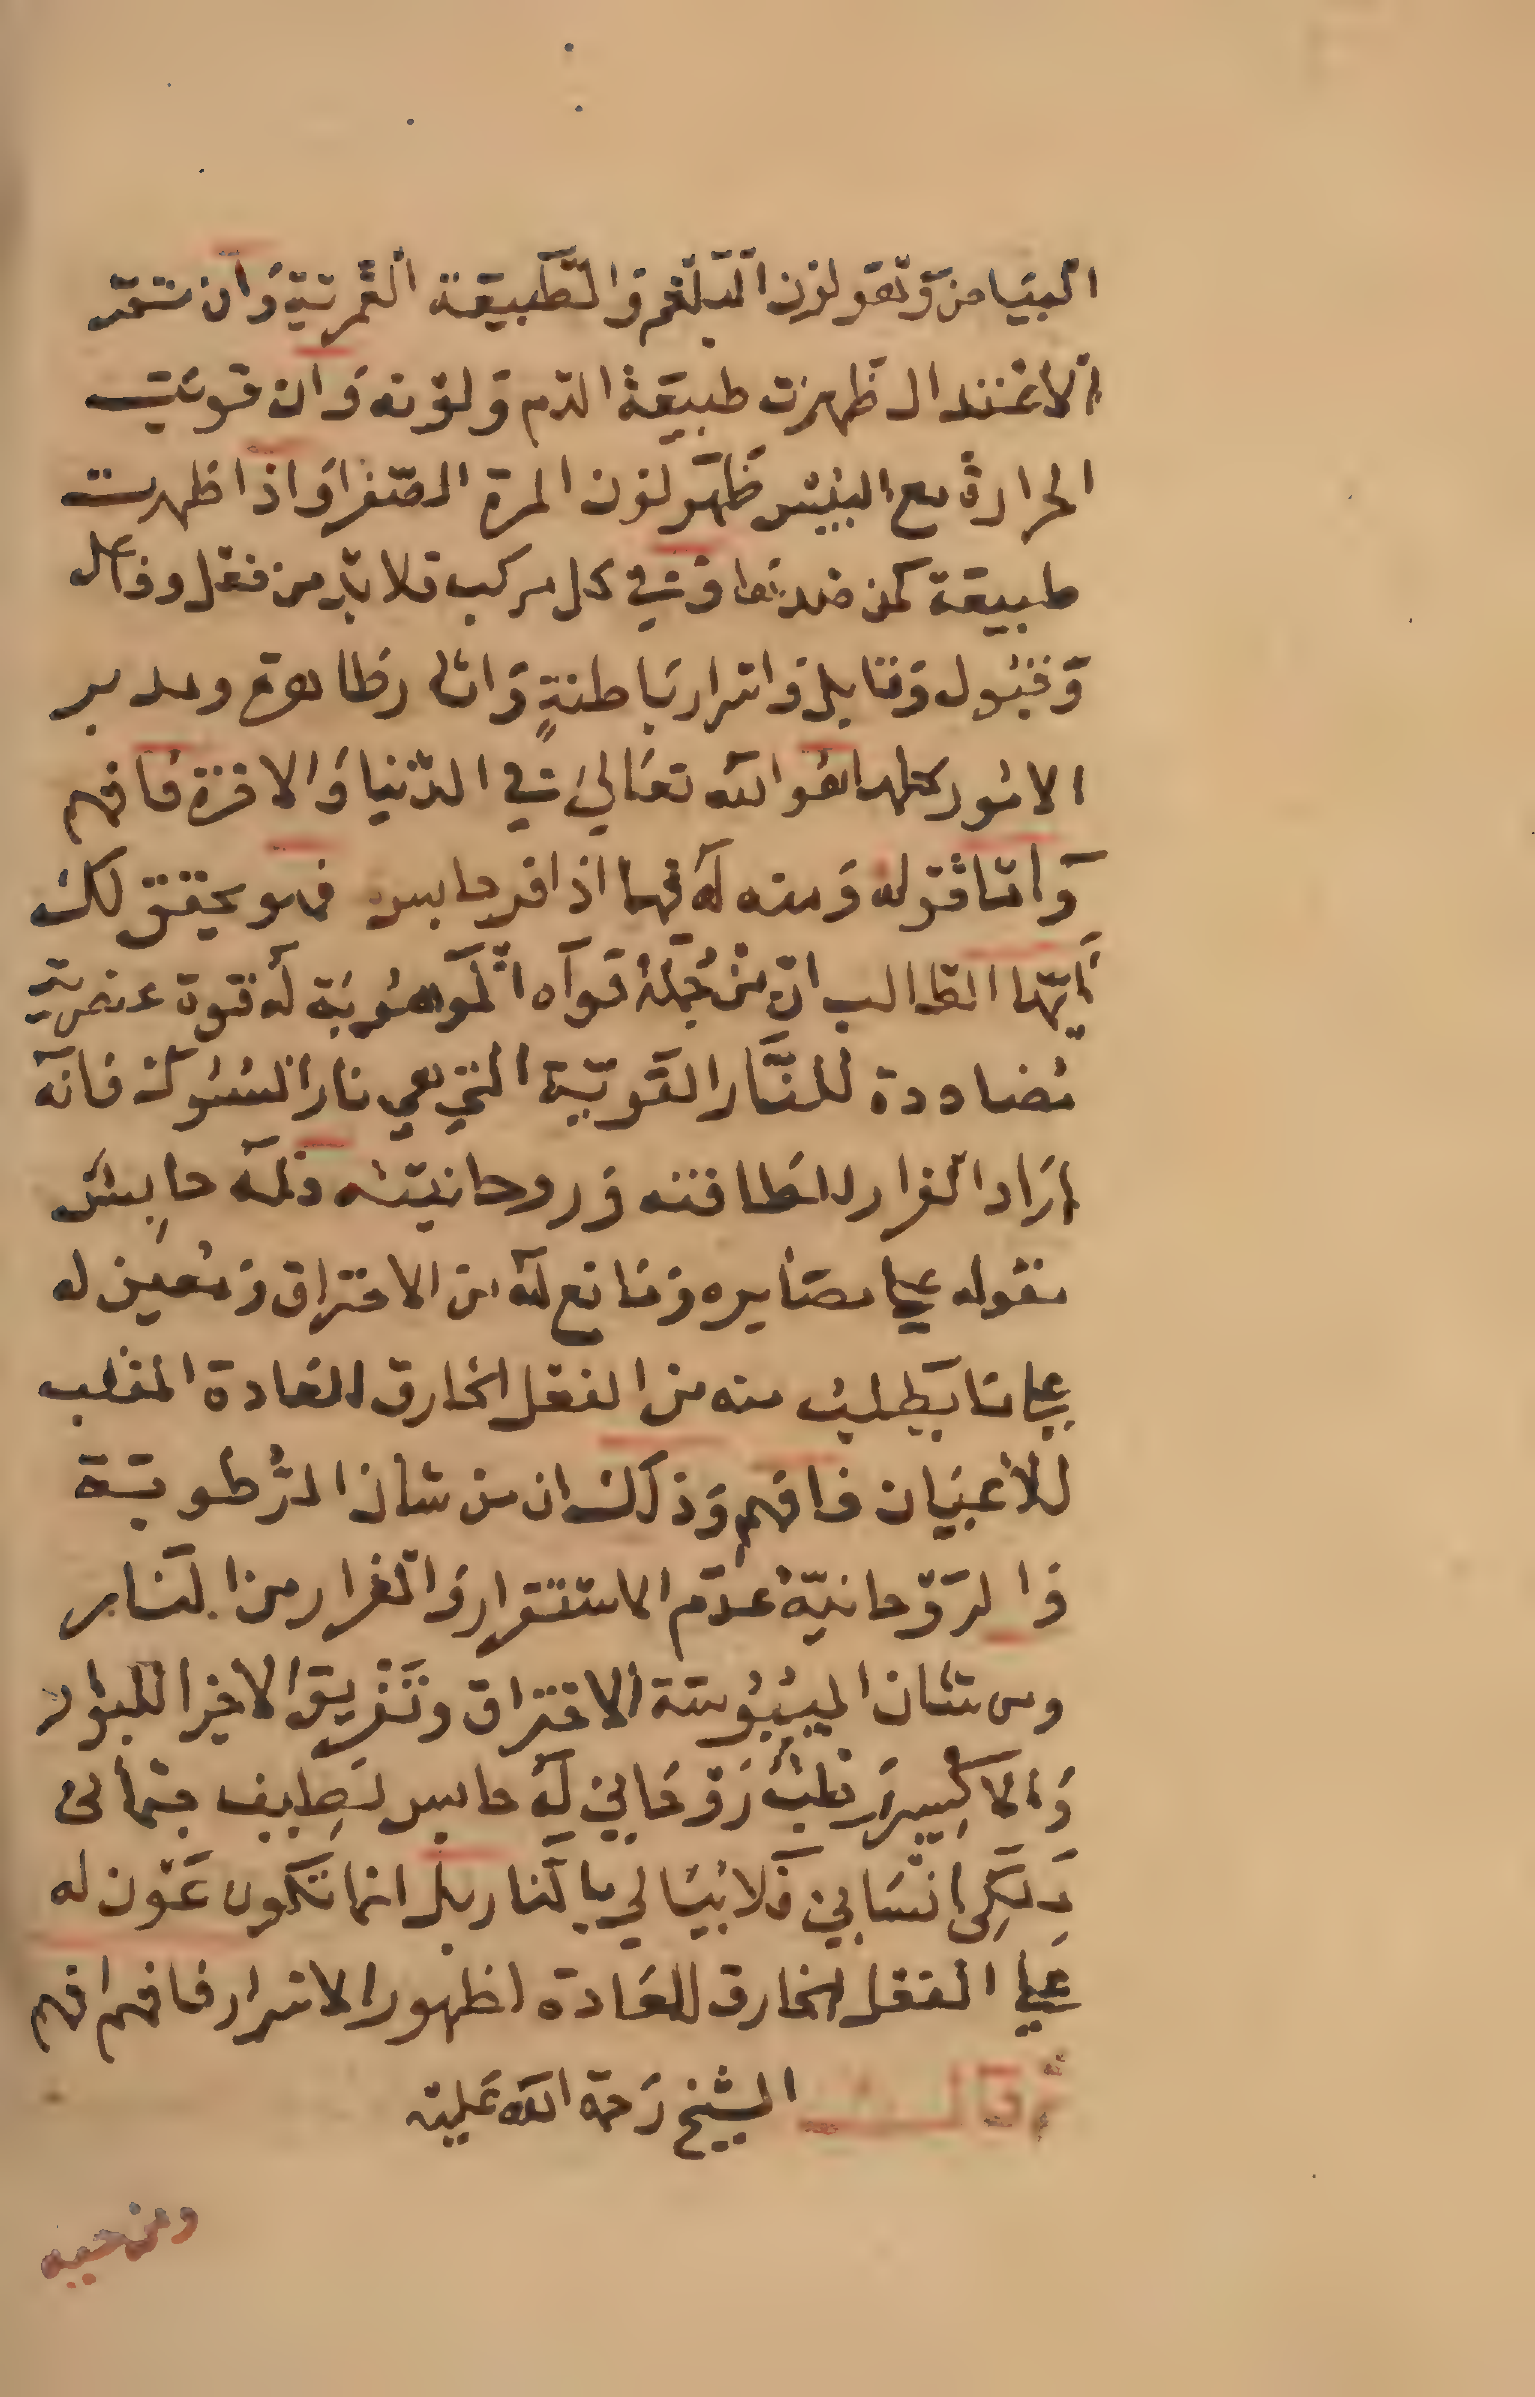 البياض وهو لون البلغم والطبيعة القمرية وان تمت
الاعتدال ظهرت طبيعة الدم ولونه وان قويت
الحرارة مع اليبس ظهر لون المرة الصفرا واذا ظهرت
طبيعة كمن ضدها وفي كل مركب فلا بد من فعل وفاعل
وقبول وقابل واسرار باطنة واثار ظاهرة ومدبر
الامور كلها هو الله تعالى في الدنيا والاخرة فافهم
واما قوله ومنه له فيها اذا فر حابس فهو يحقق لك
ايها الطالب ان من جملة قواه الموهوبة له قوة عنصرية
مضاددة للنار القوية التي هي نار السبوك فانه
اراد الفرار للطافته وروحانيته فله حابس
بقوله على مصابره ومانع له من الاحتراق ومعين له
على ما يطلب منه من الفعل الخارق العادة المقلب
للاعيان فافهم وذلك ان من شان الرطوبة
والروحانية عدم الاستقرار والفرار من النار
ومن شان اليبوسة الاحتراق وتفريق الاجزا للبوار
والاكسير قلب روحاني له حابس لطيف جثماني
ذكي انساني فلا يبالي بالنار بل انما تكون عون له
على الفعل الخارق للعادة اظهور الاسرار فافهم افهم
قال الشيخ رحمة الله عليه
ومن حبه